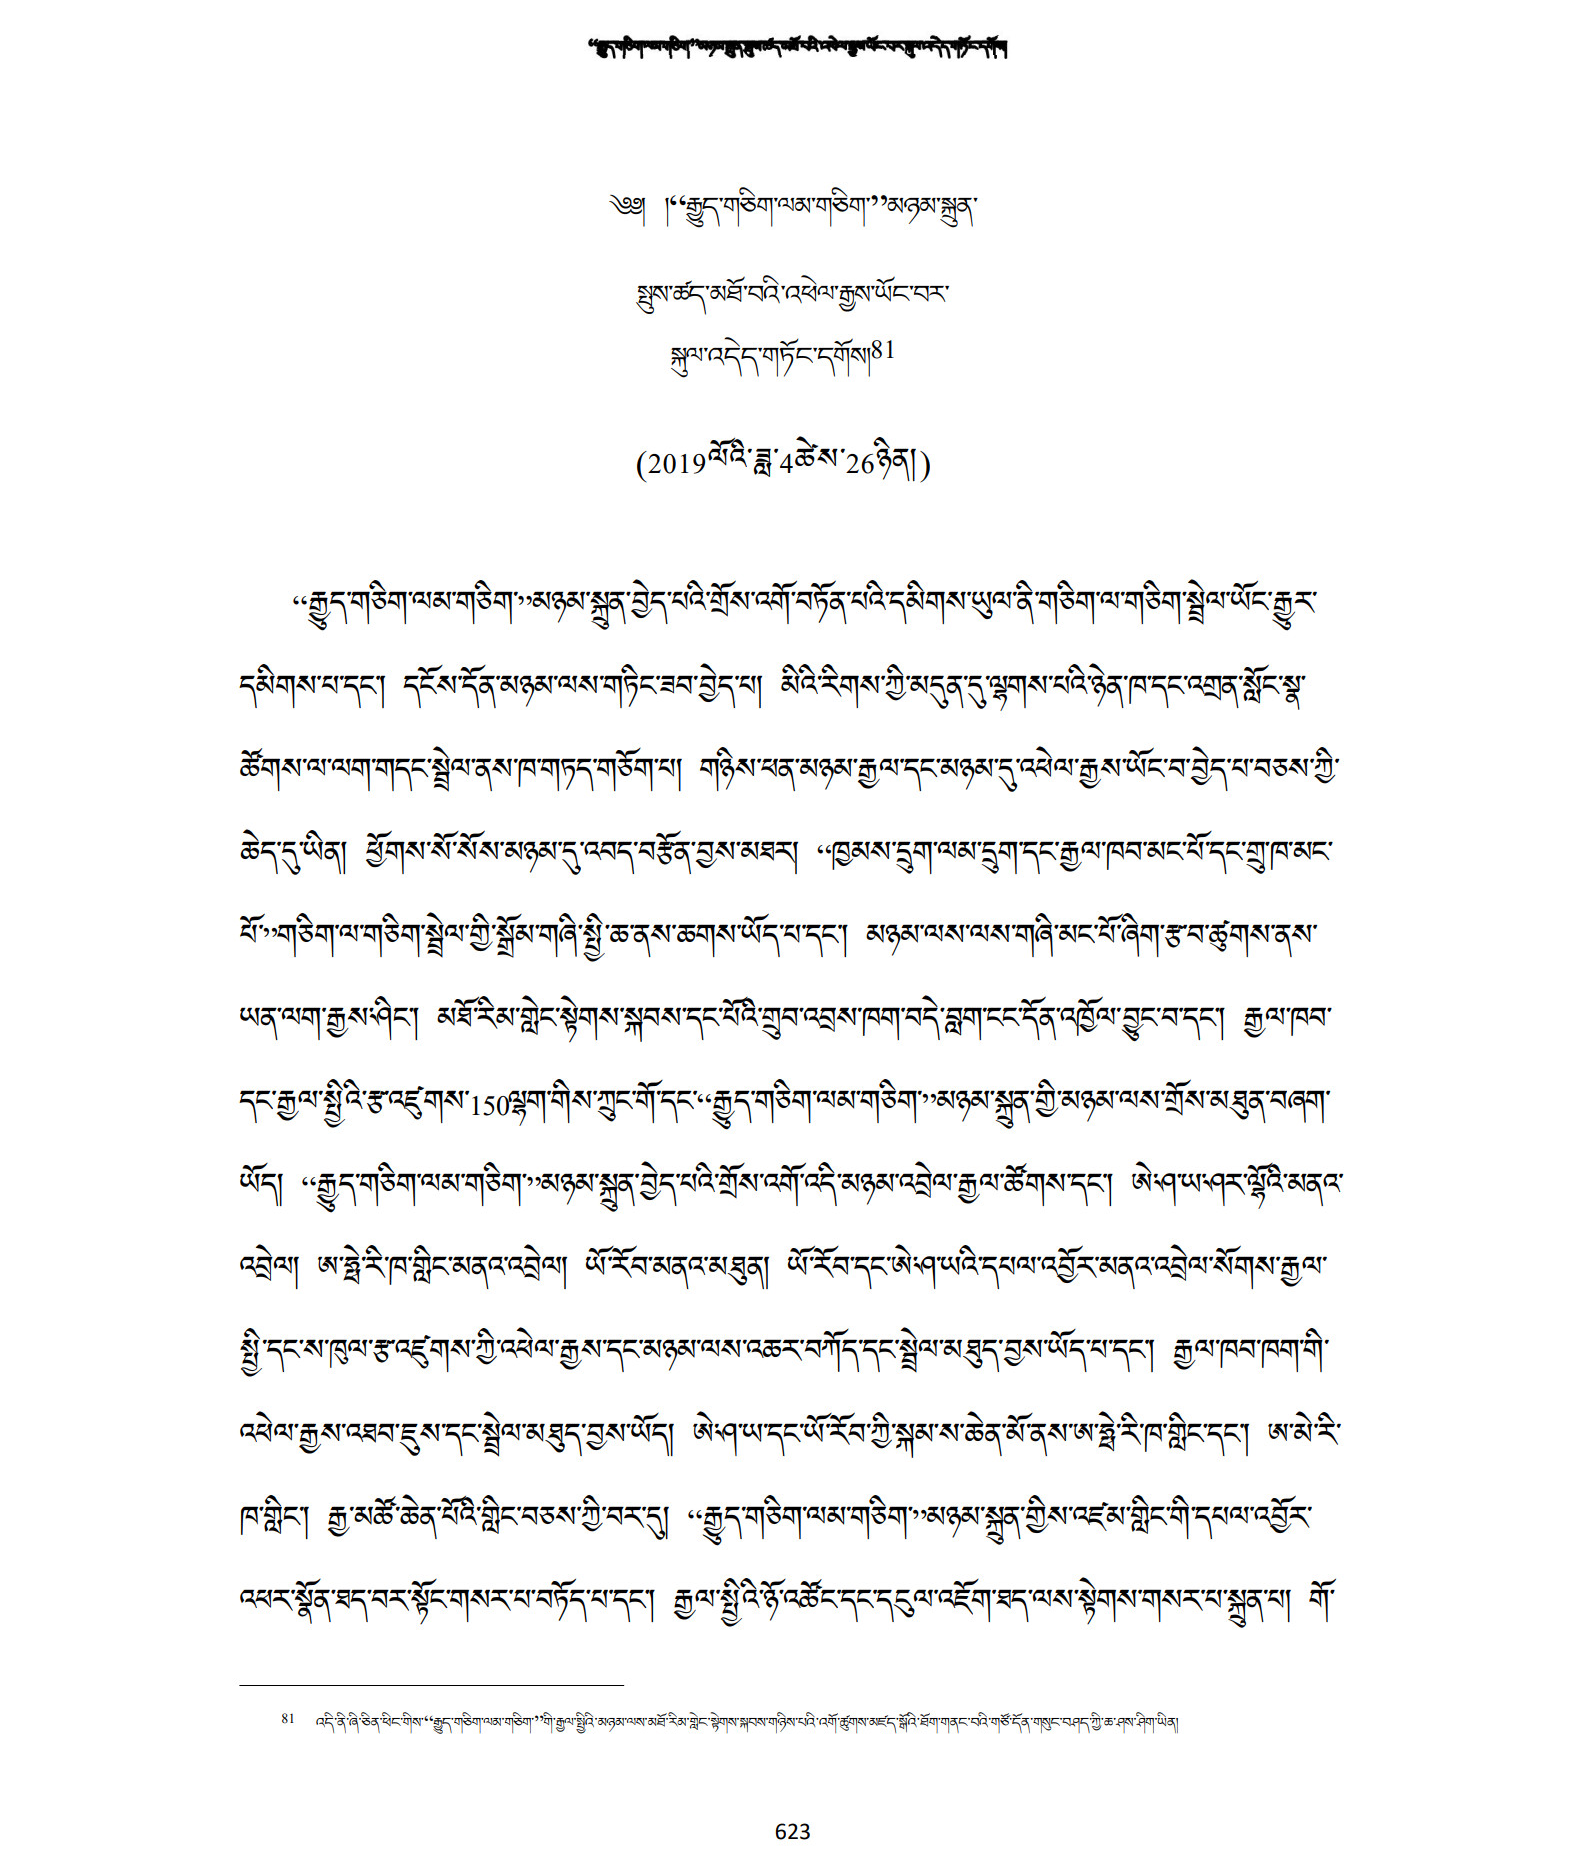 “རྒྱུད་གཅིག་ལམ་གཅིག”མཉམ་སྐྲུན་སྤུས་ཚད་མཐོ་བའི་འཕེལ་རྒྱས་ཡོང་བར་སྐུལ་འདེད་གཏོང་དགོས།
༄༅། །“རྒྱུད་གཅིག་ལམ་གཅིག་”མཉམ་སྐྲུན་
སྤུས་ཚད་མཐོ་བའི་འཕེལ་རྒྱས་ཡོང་བར་
སྐུལ་འདེད་གཏོང་དགོས།81
(2019ལོའི་ཟླ་4ཚེས་26ཉིན།)
“རྒྱུད་གཅིག་ལམ་གཅིག་”མཉམ་སྐྲུན་བྱེད་པའི་གྲོས་འགོ་བཏོན་པའི་དམིགས་ཡུལ་ནི་གཅིག་ལ་གཅིག་སྦྲེལ་ཡོང་རྒྱུར་
དམིགས་པ་དང་། དངོས་དོན་མཉམ་ལས་གཏིང་ཟབ་བྱེད་པ། མིའི་རིགས་ཀྱི་མདུན་དུ་ལྷགས་པའི་ཉེན་ཁ་དང་འགྲན་སློང་སྣ་
ཚོགས་ལ་ལག་གདང་སྦྲེལ་ནས་ཁ་གཏད་གཅོག་པ། གཉིས་ཕན་མཉམ་རྒྱལ་དང་མཉམ་དུ་འཕེལ་རྒྱས་ཡོང་བ་བྱེད་པ་བཅས་ཀྱི་
ཆེད་དུ་ཡིན། ཕྱོགས་སོ་སོས་མཉམ་དུ་འབད་བརྩོན་བྱས་མཐར། “ཁྱམས་དྲུག་ལམ་དྲུག་དང་རྒྱལ་ཁབ་མང་པོ་དང་གྲུ་ཁ་མང་
པོ་”གཅིག་ལ་གཅིག་སྦྲེལ་གྱི་སྒྲོམ་གཞི་སྤྱི་ཆ་ནས་ཆགས་ཡོད་པ་དང་། མཉམ་ལས་ལས་གཞི་མང་པོ་ཞིག་རྩ་བ་ཚུགས་ནས་
ཡན་ལག་རྒྱས་ཤིང་། མཐོ་རིམ་གླེང་སྟེགས་སྐབས་དང་པོའི་གྲུབ་འབྲས་ཁག་བདེ་བླག་ངང་དོན་འཁྱོལ་བྱུང་བ་དང་། རྒྱལ་ཁབ་
དང་རྒྱལ་སྤྱིའི་རྩ་འཛུགས་150ལྷག་གིས་ཀྲུང་གོ་དང་“རྒྱུད་གཅིག་ལམ་གཅིག་”མཉམ་སྐྲུན་གྱི་མཉམ་ལས་གྲོས་མཐུན་བཞག་
ཡོད། “རྒྱུད་གཅིག་ལམ་གཅིག་”མཉམ་སྐྲུན་བྱེད་པའི་གྲོས་འགོ་འདི་མཉམ་འབྲེལ་རྒྱལ་ཚོགས་དང་། ཨེ་ཤ་ཡ་ཤར་ལྷོའི་མནའ་
འབྲེལ། ཨ་ཧྥེ་རི་ཁ་གླིང་མནའ་འབྲེལ། ཡོ་རོབ་མནའ་མཐུན། ཡོ་རོབ་དང་ཨེ་ཤ་ཡའི་དཔལ་འབྱོར་མནའ་འབྲེལ་སོགས་རྒྱལ་
སྤྱི་དང་ས་ཁུལ་རྩ་འཛུགས་ཀྱི་འཕེལ་རྒྱས་དང་མཉམ་ལས་འཆར་བཀོད་དང་སྦྲེལ་མཐུད་བྱས་ཡོད་པ་དང་། རྒྱལ་ཁབ་ཁག་གི་
འཕེལ་རྒྱས་འཐབ་ཇུས་དང་སྦྲེལ་མཐུད་བྱས་ཡོད། ཨེ་ཤ་ཡ་དང་ཡོ་རོབ་ཀྱི་སྐམ་ས་ཆེན་མོ་ནས་ཨ་ཧྥེ་རི་ཁ་གླིང་དང་། ཨ་མེ་རི་
ཁ་གླིང་། རྒྱ་མཚོ་ཆེན་པོའི་གླིང་བཅས་ཀྱི་བར་དུ། “རྒྱུད་གཅིག་ལམ་གཅིག་”མཉམ་སྐྲུན་གྱིས་འཛམ་གླིང་གི་དཔལ་འབྱོར་
འཕར་སྣོན་ཐད་བར་སྟོང་གསར་པ་བཏོད་པ་དང་། རྒྱལ་སྤྱིའི་ཉོ་འཚོང་དང་དངུལ་འཇོག་ཐད་ལས་སྟེགས་གསར་པ་སྐྲུན་པ། གོ་
81 འདི་ནི་ཞི་ཅིན་ཕིང་གིས་“རྒྱུད་གཅིག་ལམ་གཅིག་”གི་རྒྱལ་སྤྱིའི་མཉམ་ལས་མཐོ་རིམ་གླེང་སྟེགས་སྐབས་གཉིས་པའི་འགོ་ཚུགས་མཛད་སྒོའི་ཐོག་གནང་བའི་གཙོ་དོན་གསུང་བཤད་ཀྱི་ཆ་ཤས་ཤིག་ཡིན།
623